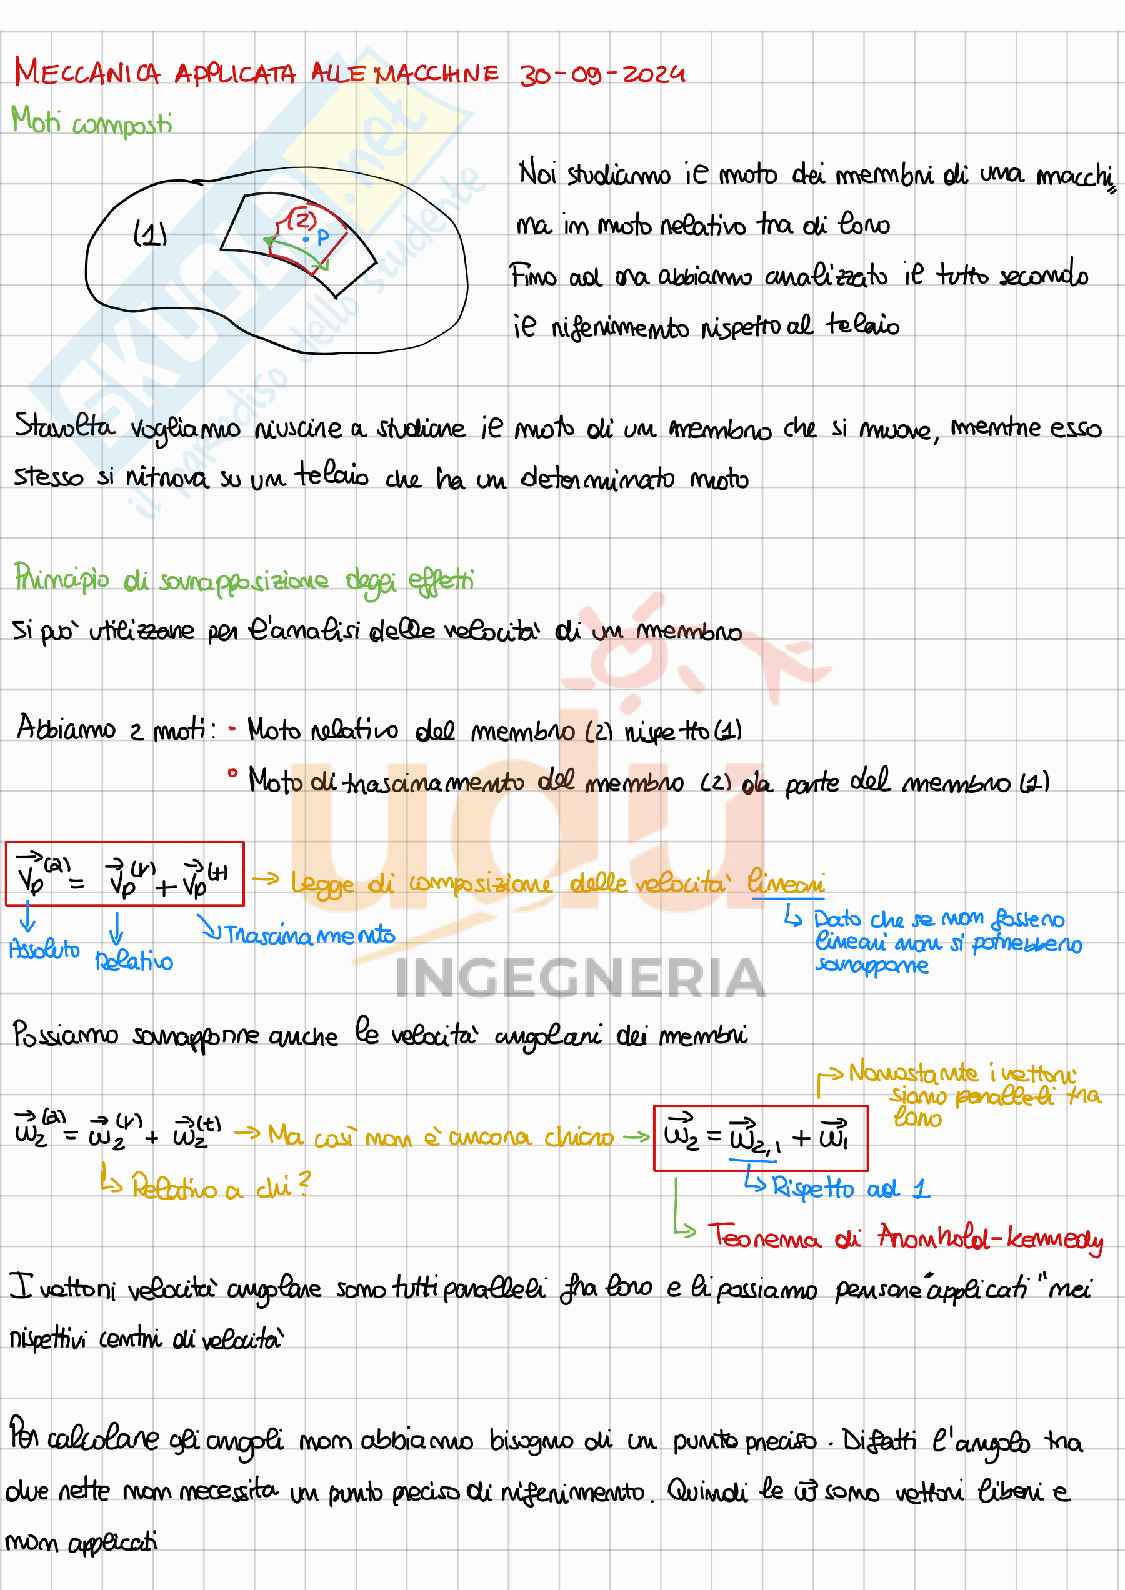 MECCANICA APPLICATA ALLE MACCHINE 30-09-2024
Moti composti
Noi studiamo il moto dei membri di una macchi
(1)
(2)
P
ma in moto relativo tra di loro
Fino ad ora abbiamo analizzato il tutto secondo
il riferimento rispetto al telaio
Stavolta vogliamo riuscire a studiare il moto di un membro che si muove, mentre esso
stesso si ritrova su un telaio che ha un determinato moto
Principio di sovrapposizione degli effetti
Si può utilizzare per l'analisi delle velocità di un membro
Abbiamo 2 moti: - Moto relativo del membro (2) rispetto (1)
• Moto di trascinamento del membro (2) da parte del membro (1)
V⃗p^(a) = V⃗p^(r) + V⃗p^(t) → Legge di composizione delle velocità lineari
Assoluto
Relativo
Trascinamento
Dato che se non fossero
lineari non si potrebbero
sovrapporre
Possiamo sovrapporre anche le velocità angolari dei membri
Nonostante i vettori
siano paralleli tra
loro
ω⃗2^(a) = ω⃗2^(r) + ω⃗2^(t) → Ma così non è ancora chiaro → ω⃗2 = ω⃗2,1 + ω⃗1
Relativo a chi?
Rispetto ad 1
Teorema di Aronhold-Kennedy
I vettori velocità angolare sono tutti paralleli fra loro e li possiamo pensare "applicati" nei
rispettivi centri di velocità
Per calcolare gli angoli non abbiamo bisogno di un punto preciso. Difatti l'angolo tra
due rette non necessita un punto preciso di riferimento. Quindi le ω⃗ sono vettori liberi e
non applicati
SKUOLA.net
il paradiso dello studente
udu
INGEGNERIA